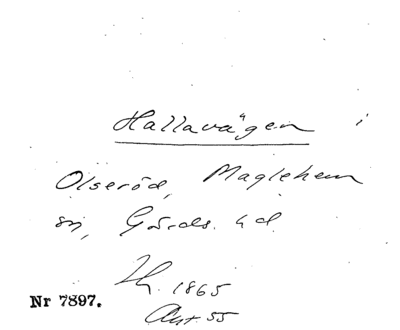 Hallavägen i
Olseröd, Maglehem
sn, Gärds hd.
1865
Nr 7897.
Akt 55